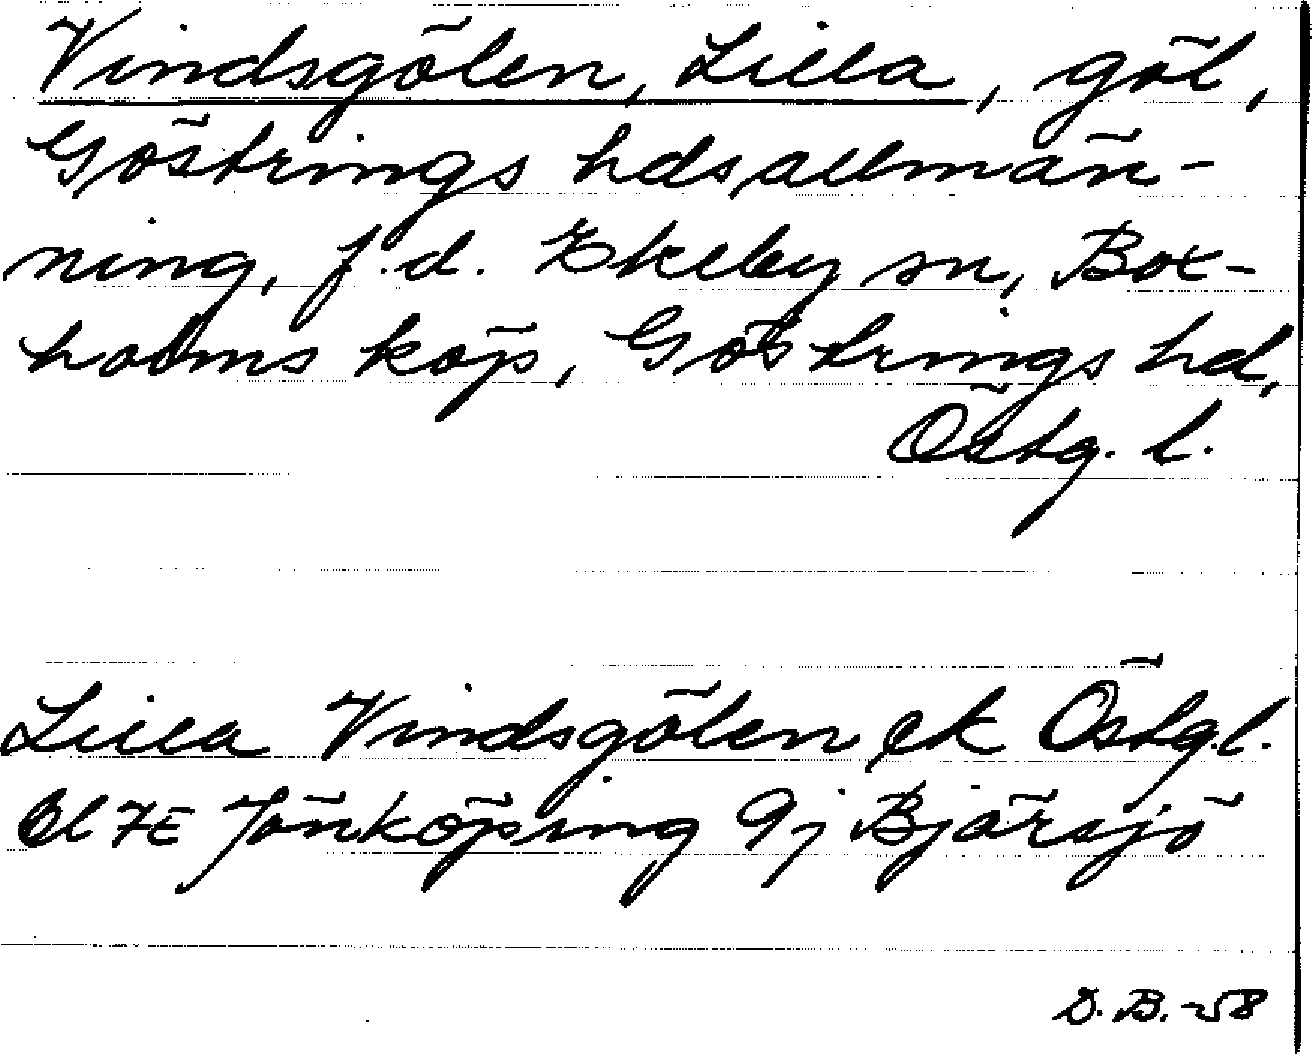 Vindsgölen, Lilla, göl,
Göstrings hdsallmän-
ning, f.d. Ekeby sn, Box-
holms köp, Göstrings hd,
Östg. l.
Lilla Vindsgölen ek Östg.l.
Bl 7E Jönköping 9j Bjärsjö
D.B.-58